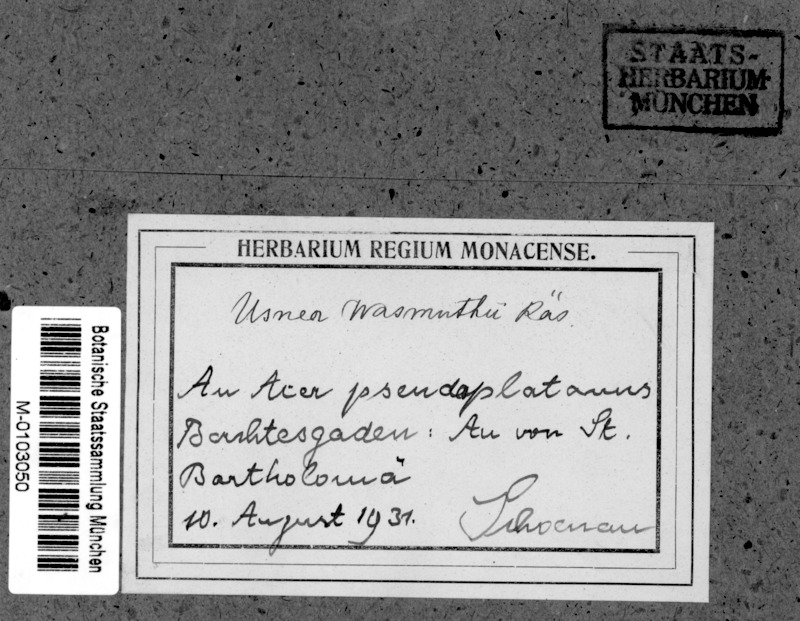 STAATS-
HERBARIUM
MÜNCHEN
HERBARIUM REGIUM MONACENSE.
Usnea Wasmuthii Räs.
An Acer pseudoplatanus
Berchtesgaden: Au von St.
Bartholomä
10. August 1931. Schoenau
Botanische Staatssammlung München
M-0103050